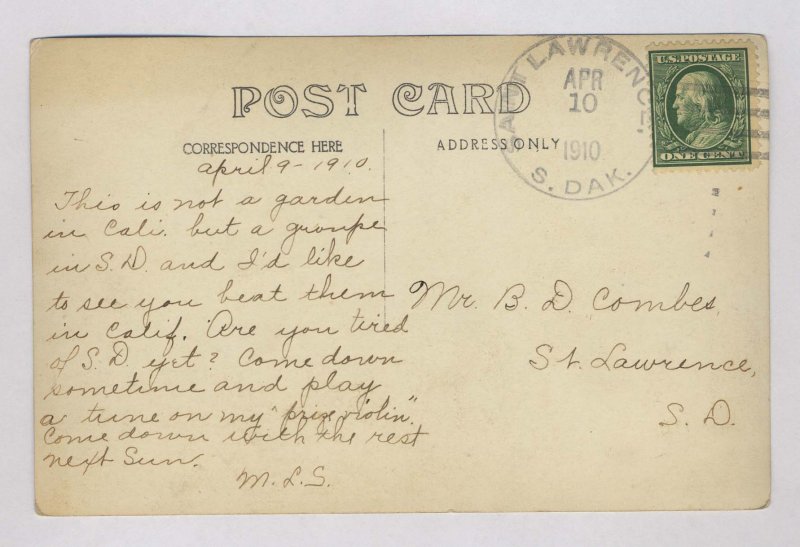 POST CARD
CORRESPONDENCE HERE
ADDRESS ONLY
SAINT LAWRENCE,
APR
10
1910
S. DAK.
U.S. POSTAGE
ONE CENT
april 9-1910.
This is not a garden
in Cali. but a groupe
in S.D. and I'd like
to see you beat them
in Calif. Are you tired
of S.D. yet? Come down
sometime and play
a tune on my "prize violin".
Come down with the rest
next Sun.
M.L.S.
Mr. B. D. Combes,
St. Lawrence,
S. D.